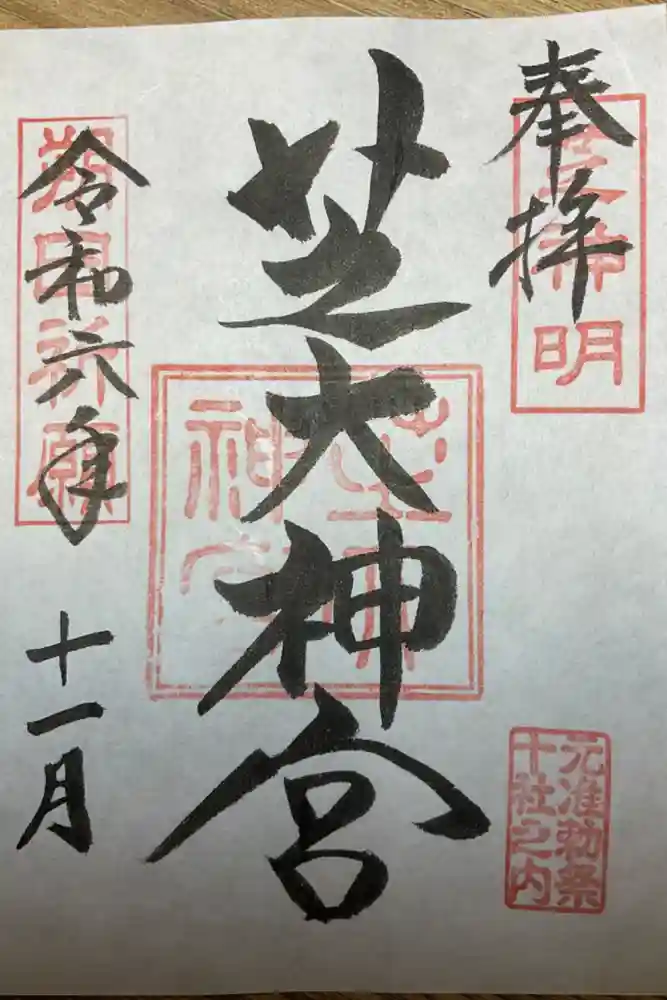 奉拝
芝神明
元准勅祭
十社之内
芝大神宮
芝大神宮
令和六年
十一月
朔日祈願